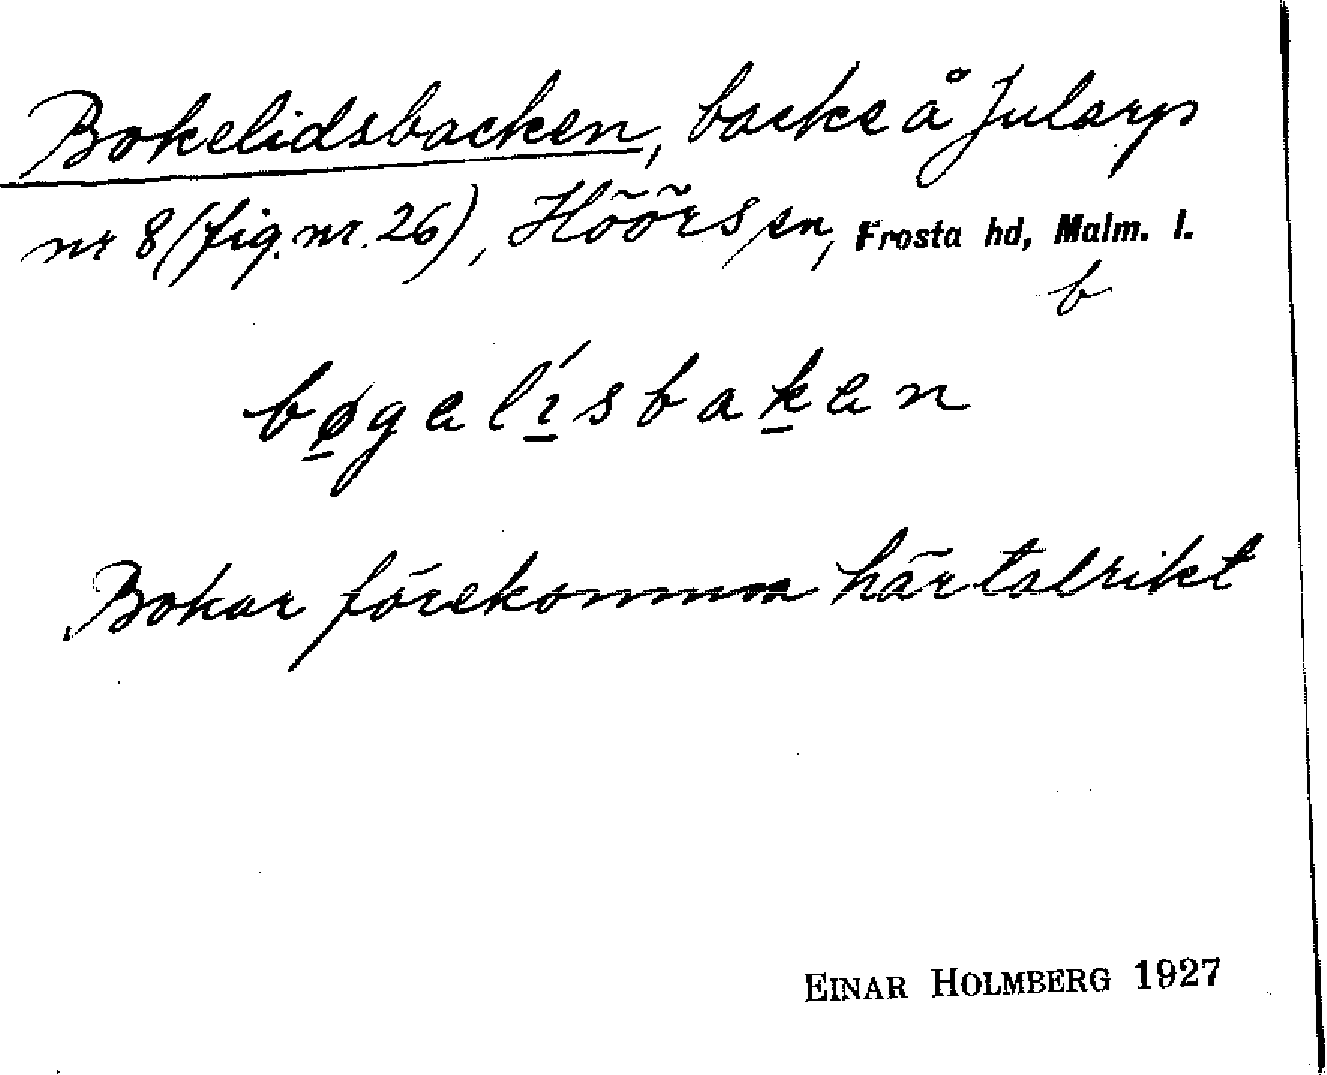 Bokelidsbacken, backe å Jularp
nr 8 (fig. nr. 26), Höörs sn, Frosta hd, Malm. l.
b
bø̱gelí̱sbaḵen
Bokar förekomma här talrikt
EINAR HOLMBERG 1927